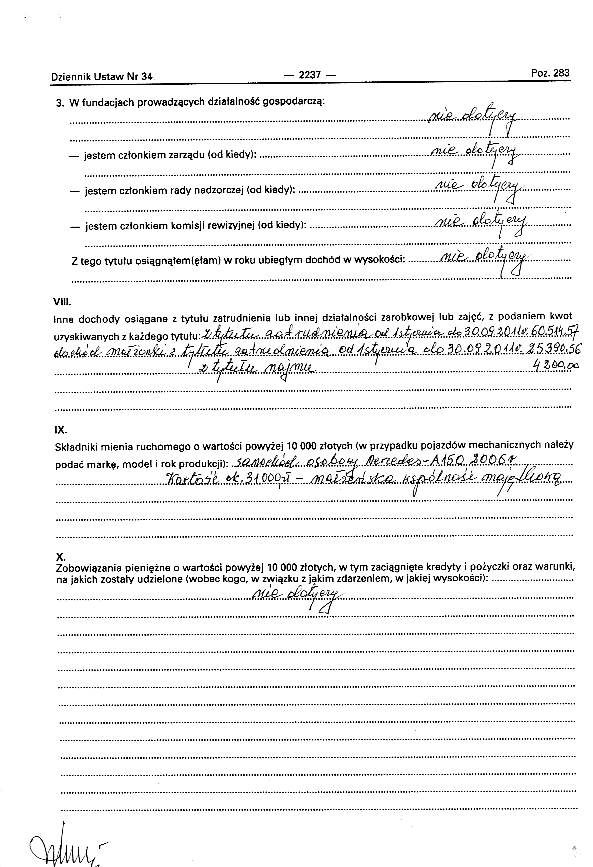 Dziennik Ustaw Nr 34 — 2237 — Poz. 283
3. W fundacjach prowadzących działalność gospodarczą:
nie dotyczy
— jestem członkiem zarządu (od kiedy): nie dotyczy
— jestem członkiem rady nadzorczej (od kiedy): nie dotyczy
— jestem członkiem komisji rewizyjnej (od kiedy): nie dotyczy
Z tego tytułu osiągnąłem(ęłam) w roku ubiegłym dochód w wysokości: nie dotyczy
VIII.
Inne dochody osiągane z tytułu zatrudnienia lub innej działalności zarobkowej lub zajęć, z podaniem kwot
uzyskiwanych z każdego tytułu: z tytułu zatrudnienia od 1 stycznia do 30.09.2011r. 60.514,57
dochód małżonki z tytułu zatrudnienia od 1 stycznia do 30.09.2011r. 25.390,56
z tytułu najmu 4200,00
IX.
Składniki mienia ruchomego o wartości powyżej 10 000 złotych (w przypadku pojazdów mechanicznych należy
podać markę, model i rok produkcji): samochód osobowy Mercedes-A150 2006r
Wartość ok. 31000zł – małżeńska wspólność majątkowa
X.
Zobowiązania pieniężne o wartości powyżej 10 000 złotych, w tym zaciągnięte kredyty i pożyczki oraz warunki,
na jakich zostały udzielone (wobec kogo, w związku z jakim zdarzeniem, w jakiej wysokości):
nie dotyczy